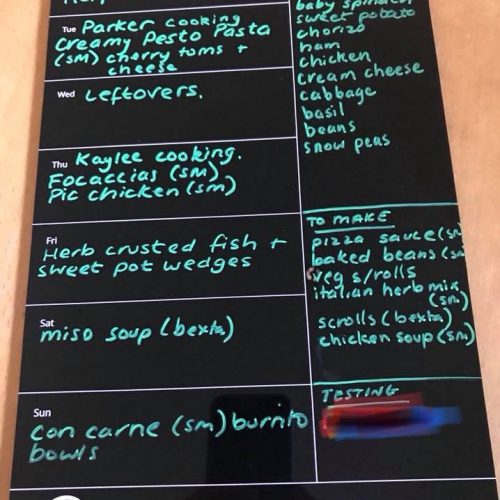 Tue Parker cooking
Creamy Pesto Pasta
(sm) cherry toms +
cheese
Wed Leftovers.
Thu Kaylee cooking.
Focaccias (sm)
Pic chicken (sm)
Fri
Herb crusted fish +
sweet pot wedges
Sat
miso soup (bexta)
Sun
con carne (sm) burrito
bowls
baby spinach
sweet potato
chorizo
ham
chicken
cream cheese
cabbage
basil
beans
snow peas
TO MAKE
pizza sauce (sm
baked beans (sm
veg s/rolls
italian herb mix
(sm)
scrolls (bexta)
chicken soup (sm)
TESTING